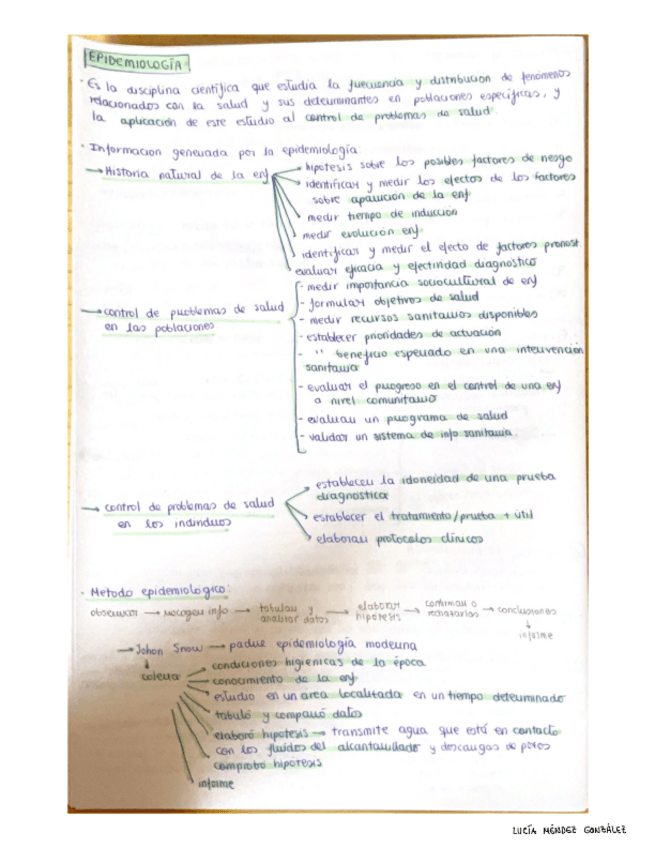 EPIDEMIOLOGÍA
· Es la disciplina científica que estudia la frecuencia y distribucion de fenómenos
relacionados con la salud y sus determinantes en poblaciones específicas, y
la aplicación de este estudio al control de problemas de salud.
· Informacion generada por la epidemiología:
→ Historia natural de la enf
hipótesis sobre los posibles factores de riesgo
identificar y medir los efectos de los factores
sobre aparición de la enf
medir tiempo de inducción
medir evolución enf.
identificar y medir el efecto de factores pronost.
evaluar eficacia y efectividad diagnostico
→ control de problemas de salud
en las poblaciones
- medir importancia sociocultural de enf
- formular objetivos de salud
- medir recursos sanitarios disponibles
- establecer prioridades de actuación
- " beneficio esperado en una intervención
sanitaria
- evaluar el progreso en el control de una enf
a nivel comunitario
- evaluar un programa de salud
- validar un sistema de info sanitaria.
→ control de problemas de salud
en los individuos
establecer la idoneidad de una prueba
diagnostica
establecer el tratamiento/prueba + útil
elaborar protocolos clínicos
· Metodo epidemiologico:
observar → recoger info → tabular y analizar datos → elaborar hipótesis → confirmar o rechazarlas → conclusiones
↓
informe
→ Johon Snow → padre epidemiología moderna
↓
colera
condiciones higienicas de la época
conocimiento de la enf
estudio en un area localizada en un tiempo determinado
tabuló y comparó datos
elaboró hipótesis → transmite agua que está en contacto
con los fluidos del alcantarillado y descargas de pozos
comprobó hipótesis
informe
LUCÍA MÉNDEZ GONZÁLEZ